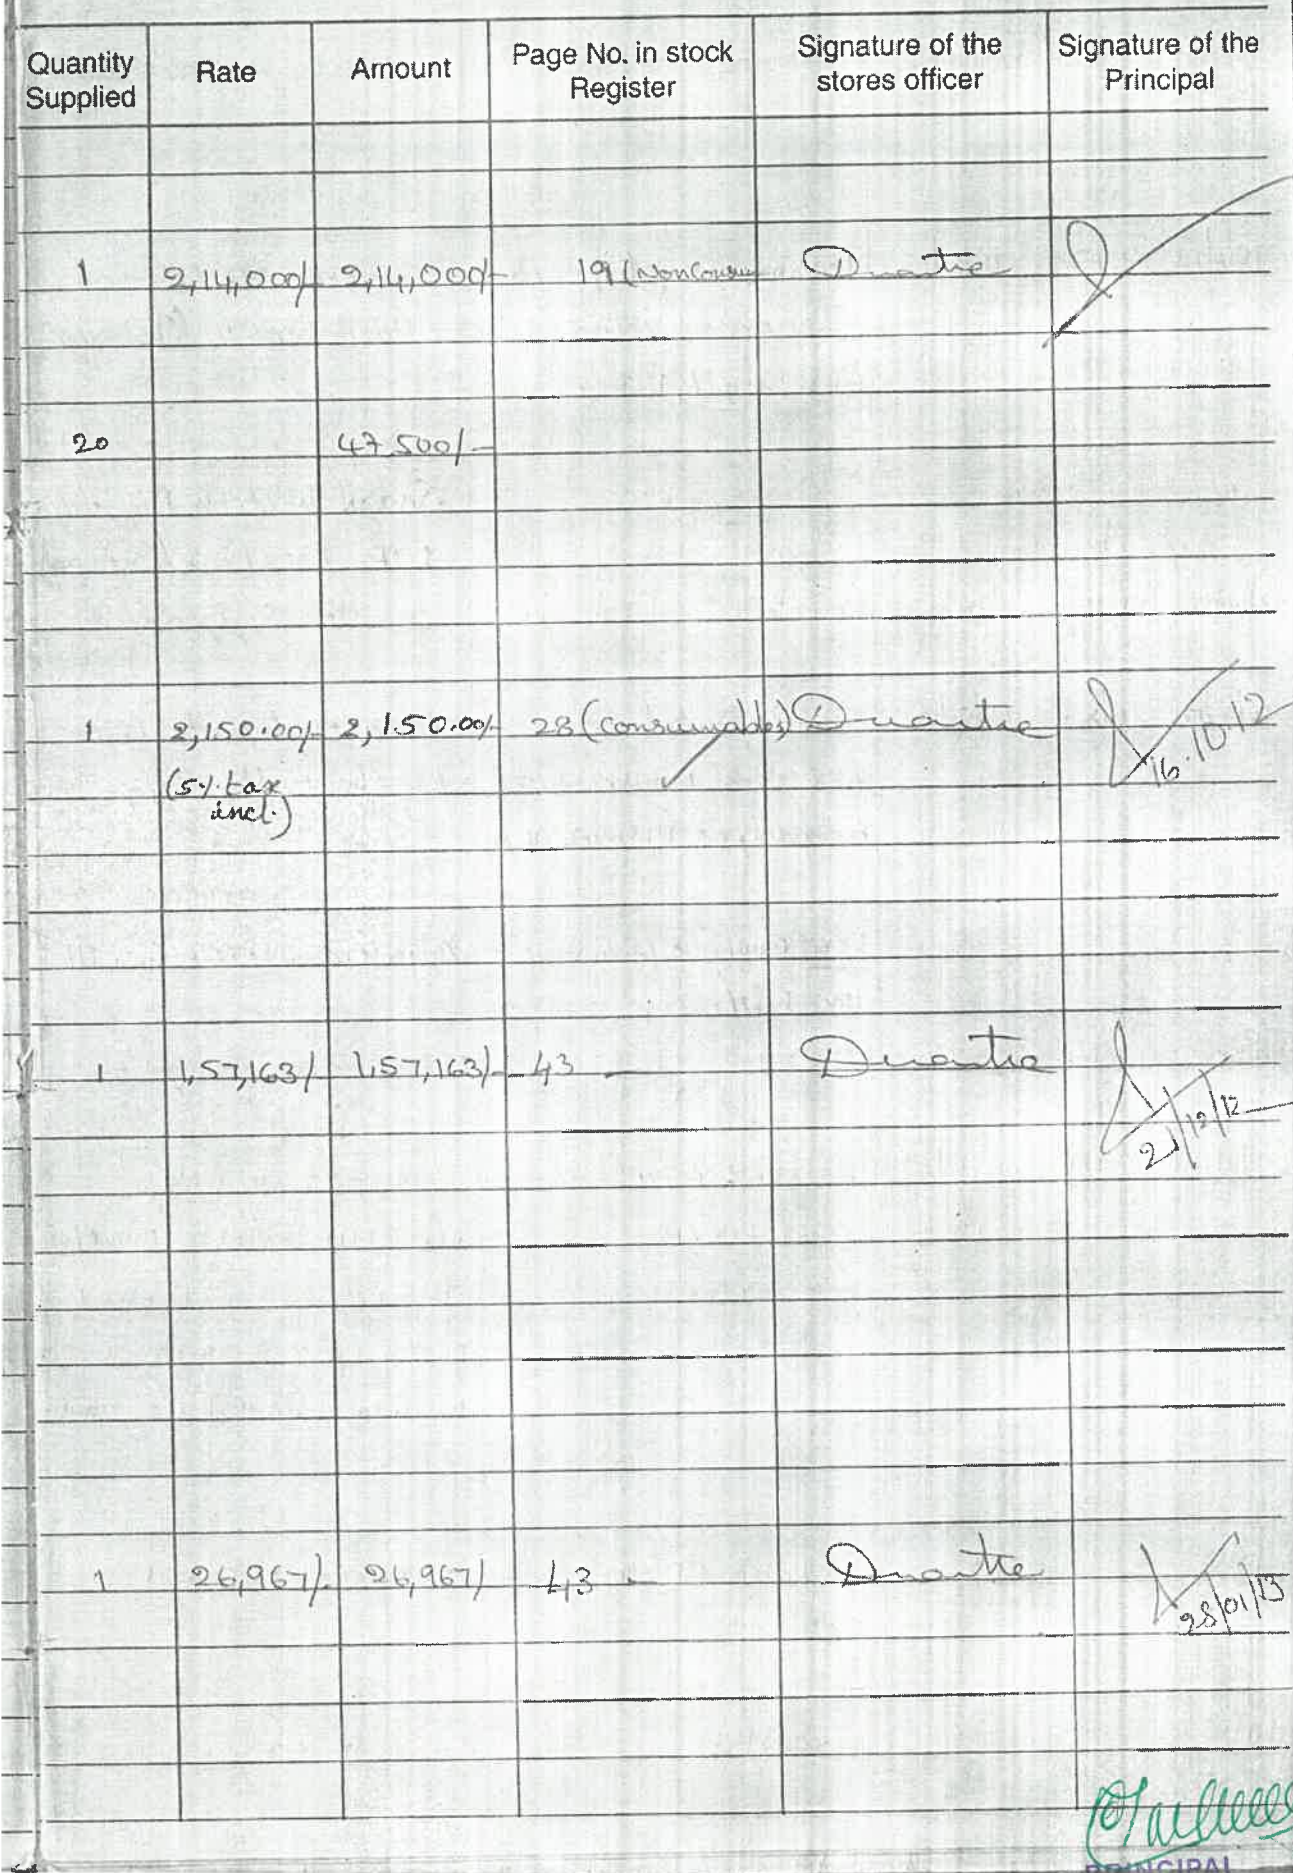 Quantity Supplied Rate Amount Page No. in stock Register Signature of the stores officer Signature of the Principal
1 2,14,000/- 2,14,000/- 19 (NonConsu
20 47,500/-
1 2,150.00/- 2,150.00/- 28 (consumables) 16.10.12
(5% tax
incl.)
1 1,57,163/ 1,57,163/- 43
21/12/12
1 26,967/- 26,967/ 43
28/01/13
PRINCIPAL